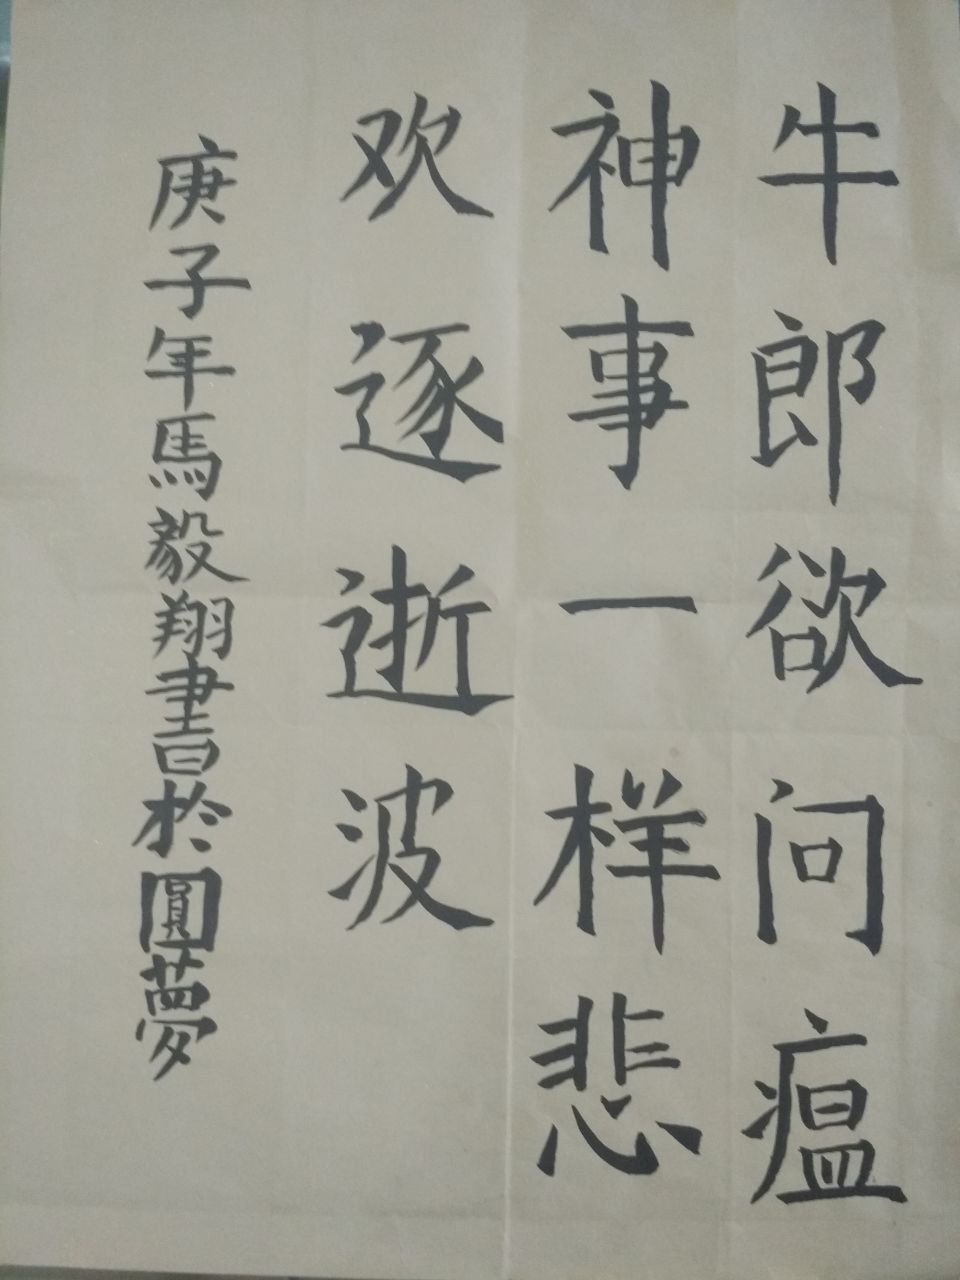 牛郎欲问瘟
神事一样悲
欢逐逝波
庚子年馬毅翔書於圓夢